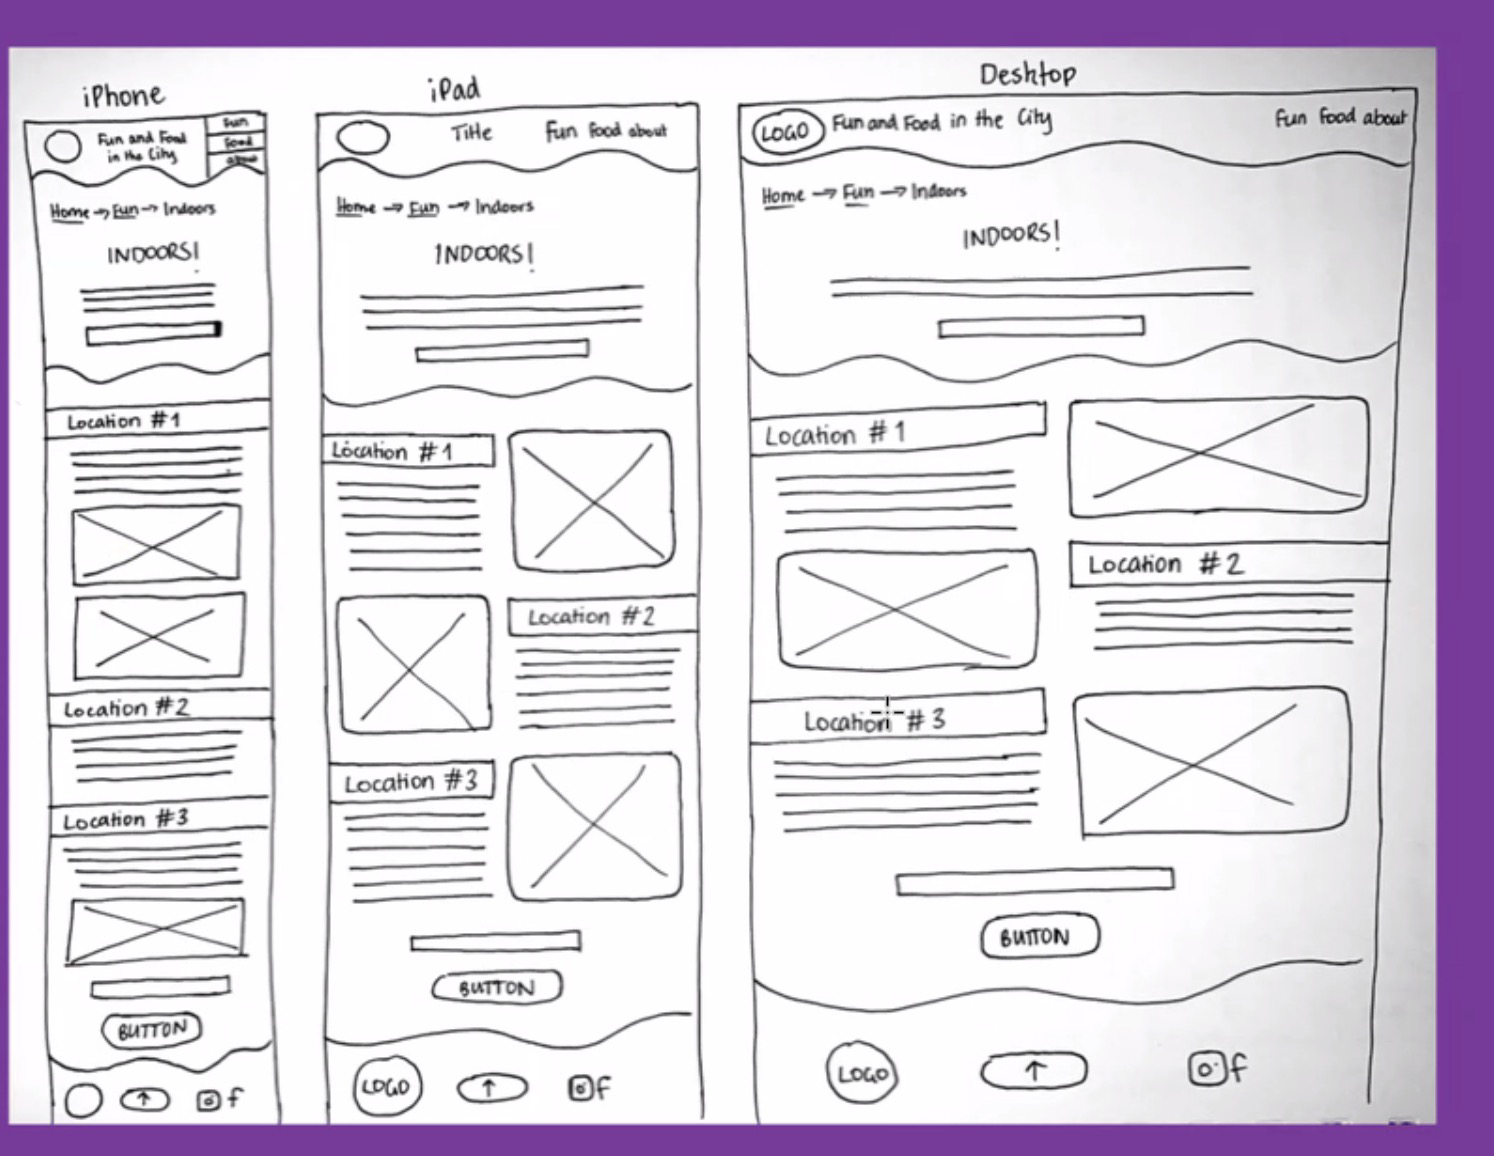 iPhone
Fun and Food
in the City
Fun
Food
about
Home → Fun → Indoors
INDOORS!
Location #1
Location #2
Location #3
BUTTON
↑
f
iPad
Title
Fun Food about
Home → Fun → Indoors
INDOORS!
Location #1
Location #2
Location #3
BUTTON
LOGO
↑
f
Desktop
LOGO
Fun and Food in the City
Fun Food about
Home → Fun → Indoors
INDOORS!
Location #1
Location #2
Location #3
BUTTON
LOGO
↑
f